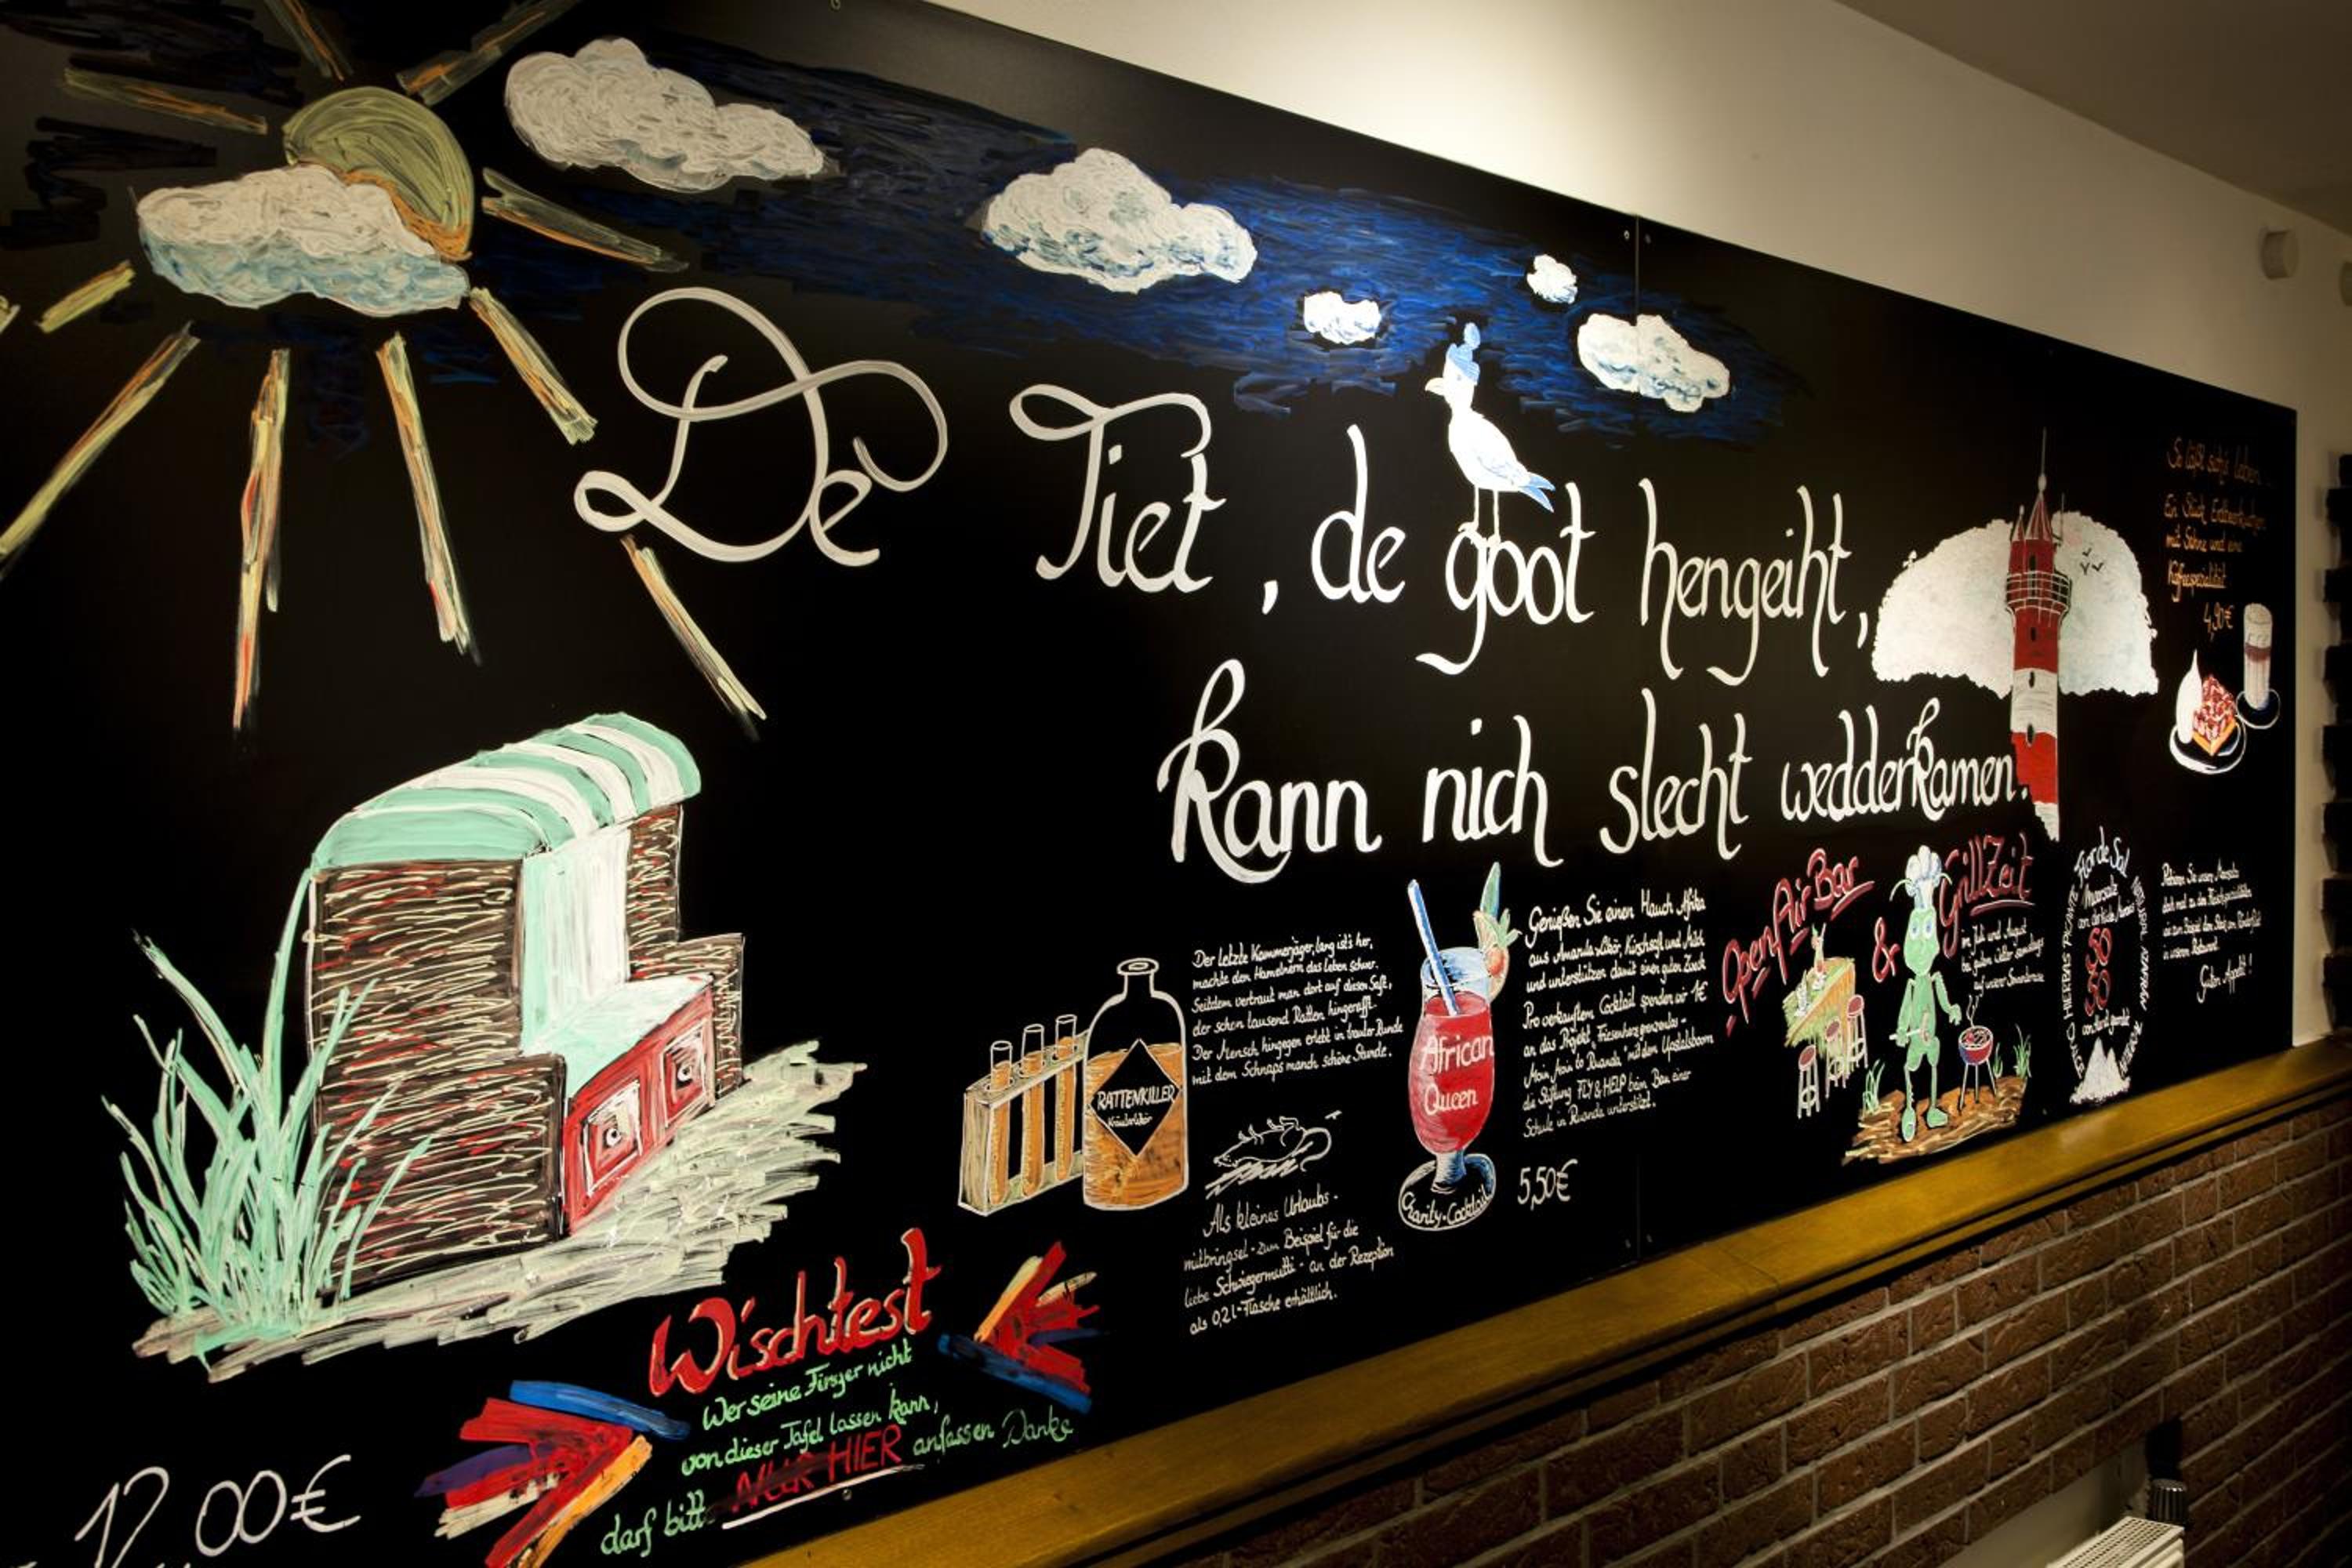 De Tiet, de goot hengeiht,
kann nich slecht wedderkamen.
So läßt sich's leben...
Ein Stück Erdbeerkuchen
mit Sahne und eine
Kaffeespezialität
4,90€
Der letzte Kammerjäger, lang ist's her,
machte den Hamelnern das Leben schwer.
Seitdem vertraut man dort auf diesen Saft,
der schon tausend Ratten hingerafft.
Der Mensch hingegen erlebt in trauter Runde
mit dem Schnaps manch schöne Stunde.
RATTENKILLER
Kräuterlikör
Als kleines Urlaubs-
mitbringsel - zum Beispiel für die
liebe Schwiegermutti - an der Rezeption
als 0,2l-Flasche erhältlich.
African
Queen
Charity-Cocktail
Genießen Sie einen Hauch Afrika
aus Amarula Likör, Kirschsaft und Milch
und unterstützen damit einen guten Zweck
Pro verkauftem Cocktail spenden wir 1€
an das Projekt „Friesenherz grenzenlos -
Moin Moin to Ruanda" mit dem Upstalsboom
die Stiftung FLY & HELP beim Bau einer
Schule in Ruanda unterstützt.
5,50€
Open Air Bar
& GrillZeit
im Juli und August
bei gutem Wetter Samstags
auf unserer Sonnenterasse
Flor de Sal
Meersalz
50
50
Guten Appetit!
Wischtest
Wer seine Finger nicht
von dieser Tafel lassen kann,
darf bitte NUR HIER anfassen Danke
12,00€